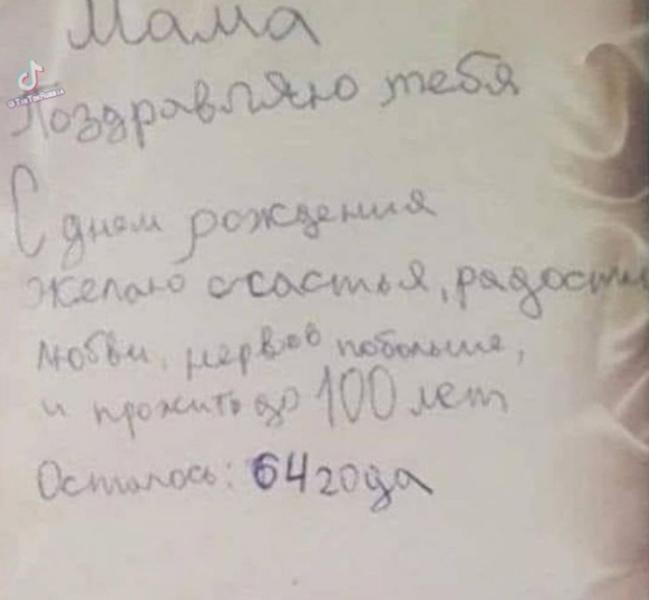 Мама
TikTok Russia
Поздравляю тебя
С днем рождения
желаю счастья, радости
любви, нервов побольше,
и прожить до 100 лет
Осталось: 64 года